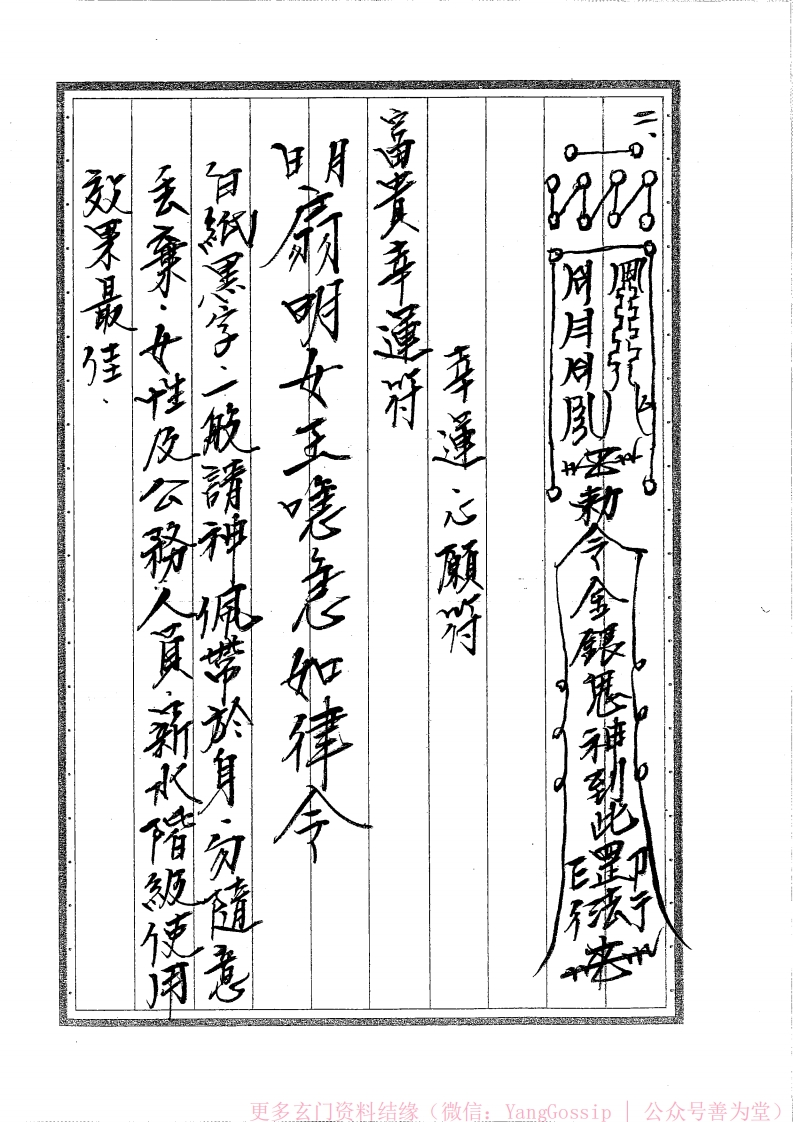 二、
勅令金銀鬼神到此罡法
幸運心願符
富貴幸運符
明扇明女王嗯急如律令
白紙黑字、一般請神佩帶於身、勿隨意
丟棄、女性及公務人員、薪水階級使用
效果最佳、
更多玄门资料结缘（微信：YangGossip | 公众号善为堂）